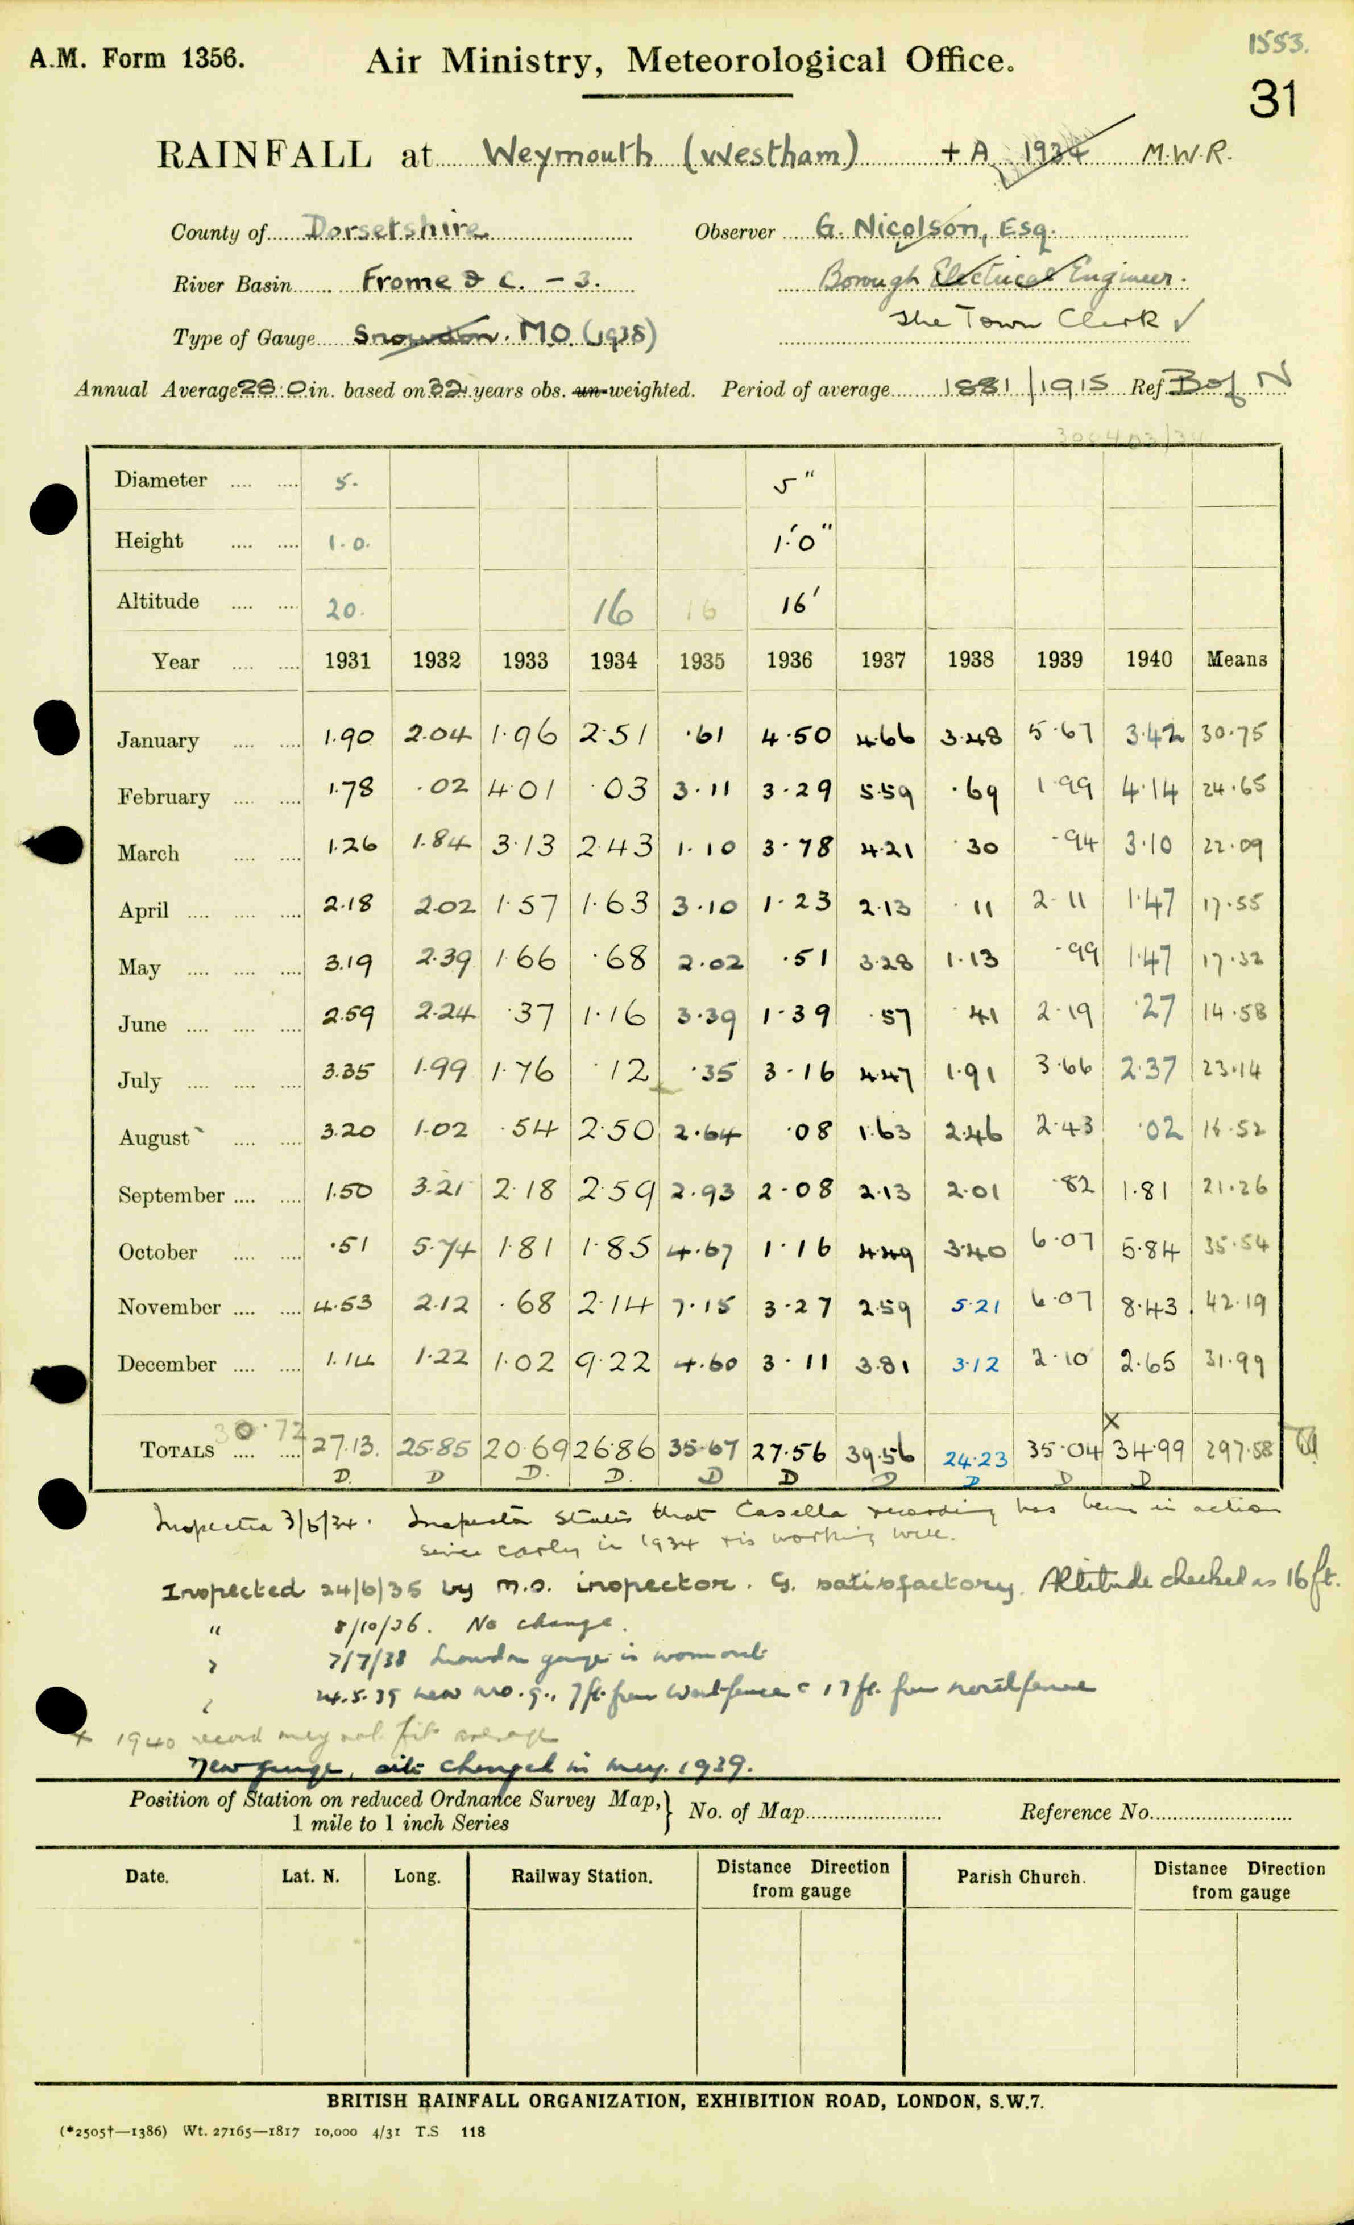 1553.
A.M. Form 1356. Air Ministry, Meteorological Office.
31
RAINFALL at Weymouth (Westham) + A 1934 M.W.R.
County of Dorsetshire Observer G. Nicolson, Esq.
River Basin Frome & C. - 3. Borough Electrical Engineer.
Type of Gauge Snowdon. M.O. (1938) The Town Clerk ✓
Annual Average 28.0 in. based on 32 years obs. un-weighted. Period of average 1881/1915 Ref B of N
Diameter 5. 5"
Height 1.0. 1'.0"
Altitude 20. 16 16 16'
Year 1931 1932 1933 1934 1935 1936 1937 1938 1939 1940 Means
January 1.90 2.04 1.96 2.51 .61 4.50 4.66 3.48 5.67 3.42 30.75
February 1.78 .02 4.01 .03 3.11 3.29 5.59 .69 1.99 4.14 24.65
March 1.26 1.84 3.13 2.43 1.10 3.78 4.21 .30 .94 3.10 22.09
April 2.18 2.02 1.57 1.63 3.10 1.23 2.13 .11 2.11 1.47 17.55
May 3.19 2.39 1.66 .68 2.02 .51 3.28 1.13 .99 1.47 17.32
June 2.59 2.24 .37 1.16 3.39 1.39 .57 .41 2.19 .27 14.58
July 3.35 1.99 1.76 .12 .35 3.16 4.47 1.91 3.66 2.37 23.14
August 3.20 1.02 .54 2.50 2.64 .08 1.63 2.46 2.43 .02 16.52
September 1.50 3.21 2.18 2.59 2.93 2.08 2.13 2.01 .82 1.81 21.26
October .51 5.74 1.81 1.85 4.67 1.16 4.49 3.40 6.07 5.84 35.54
November 4.53 2.12 .68 2.14 7.15 3.27 2.59 5.21 6.07 8.43 42.19
December 1.14 1.22 1.02 9.22 4.60 3.11 3.81 3.12 2.10 2.65 31.99
30.72 x
TOTALS 27.13. 25.85 20.69 26.86 35.67 27.56 39.56 24.23 35.04 34.99 297.58
D. D D. D. D D D D D D
Inspection 3/5/34. Inspector states that Casella recording has been in action
since early in 1934 & is working well.
Inspected 24/6/35 by M.O. inspector. G. satisfactory. Altitude checked as 16 ft.
" 8/10/36. No change.
" 7/7/38 Snowdon gauge is worn out
24.5.39 new M.O. g., 7 ft. from West fence & 17 ft. from north fence
x 1940 record may not fit average
New gauge, site changed in May. 1939.
Position of Station on reduced Ordnance Survey Map, 1 mile to 1 inch Series } No. of Map Reference No.
Date. Lat. N. Long. Railway Station. Distance Direction from gauge Parish Church. Distance Direction from gauge
BRITISH RAINFALL ORGANIZATION, EXHIBITION ROAD, LONDON, S.W.7.
(*2505†—1386) Wt. 27165—1817 10,000 4/31 T.S 118